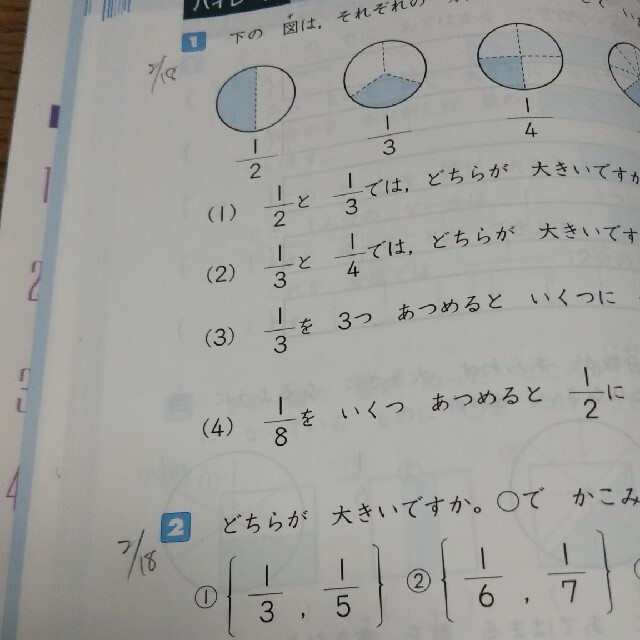 ハイレ
1 下の 図は，それぞれの
2/18
1/2 1/3 1/4
(1) 1/2と 1/3では，どちらが 大きいですか
(2) 1/3と 1/4では，どちらが 大きいです
(3) 1/3を 3つ あつめると いくつに
(4) 1/8を いくつ あつめると 1/2に
2 どちらが 大きいですか。○で かこみ
2/18
① {1/3 , 1/5} ② {1/6 , 1/7}
1
2
3
4